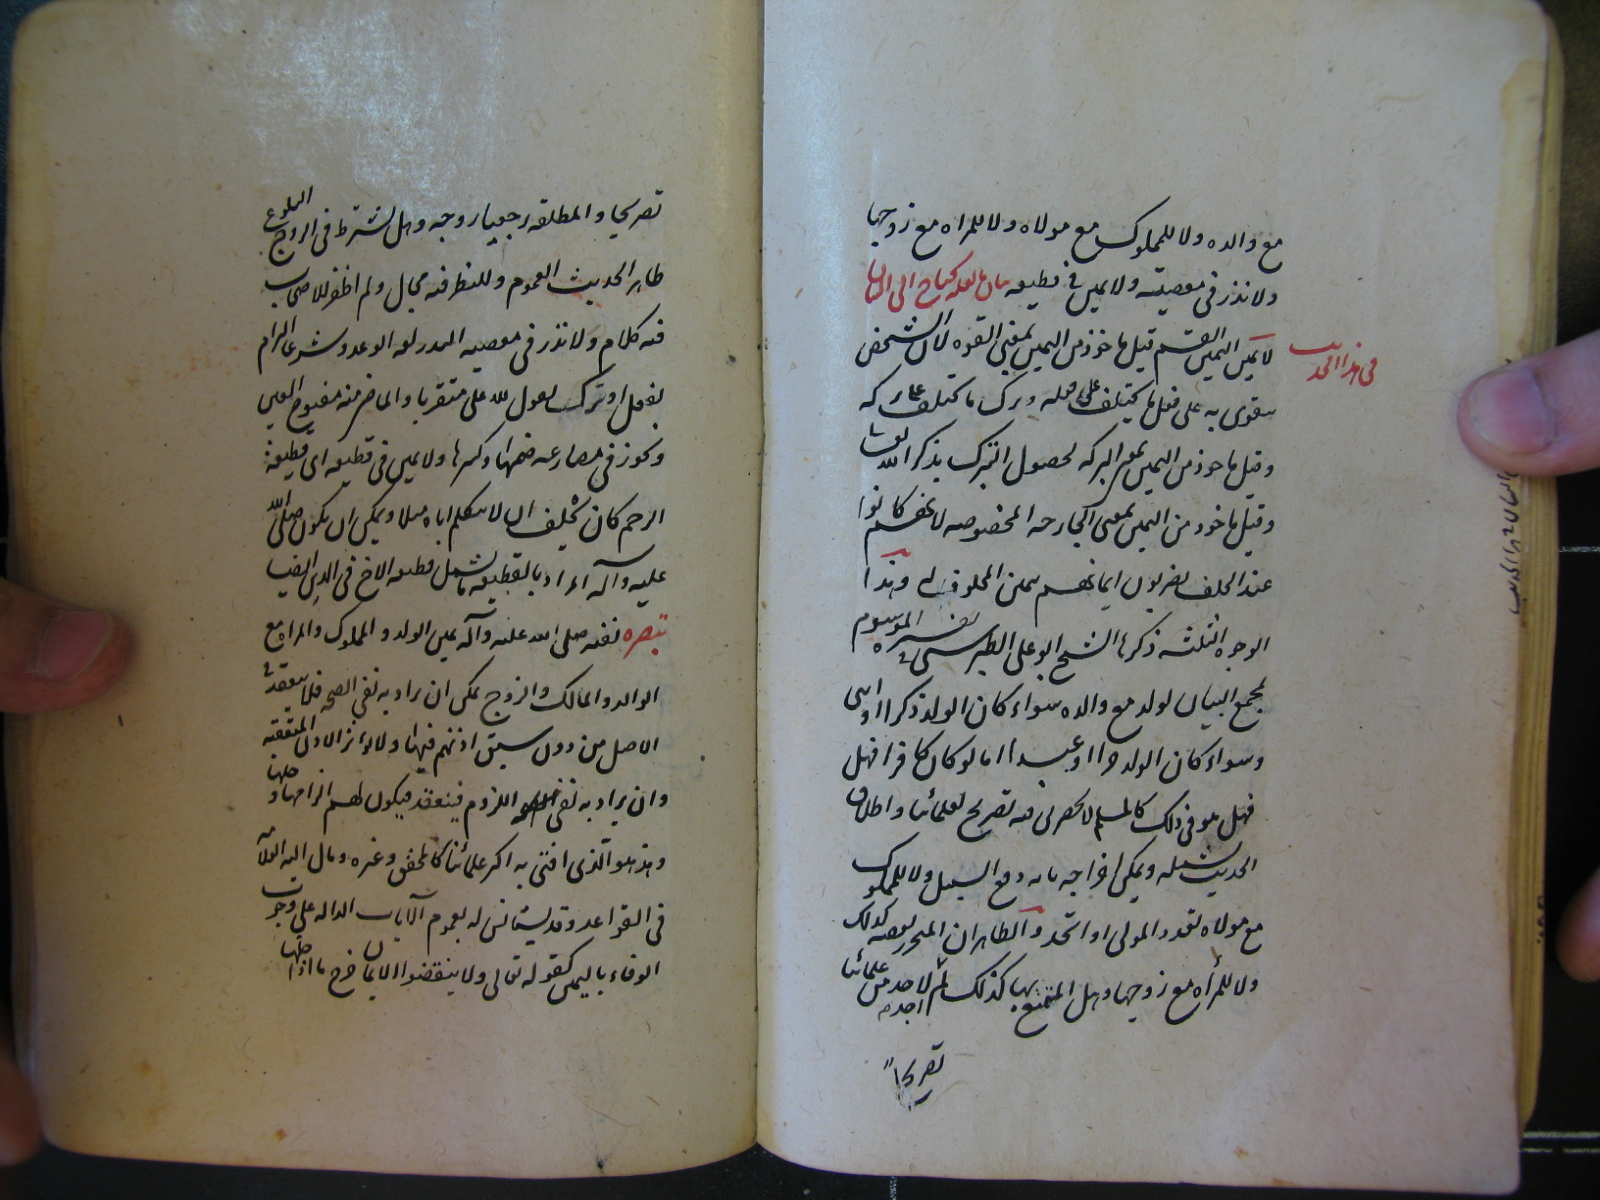 مع والده ولا للمملوك مع مولاه ولا للمراه مع زوجها
ولا نذر فى معصيته ولا يمين فى قطيعه بيان ما لعله يحتاج الى البيان
فى هذا الحديث
لا يمين اليمين القسم قيل ماخوذ من اليمين بمعنى القوه لان الشخص
يتقوى به على فعل ما يحلف على فعله وترك ما يحلف على تركه
وقيل ماخوذ من اليمن بمعنى البركه لحصول التبرك بذكر الله تعالى
وقيل ماخوذ من اليمين بمعنى الجارحه المخصوصه لانهم كانوا
عند الحلف يضربون ايمانهم بيمين المحلوف له وهذا
الوجوه الثلثه ذكرها الشيخ ابو على الطبرسى فى تفسيره الموسوم
بمجمع البيان لولد مع والده سواء كان الولد ذكرا او انثى
وسواء كان الولد حرا او عبدا اما لو كان كافرا فهل
فهل هو فى ذلك كالمسلم لا يحضرنى فيه تصريح لعلمائنا واطلاق
الحديث يشمله ويمكن اخراجه بانه دفع السبيل ولا للمملوك
مع مولاه تعدد المولى او اتحد والظاهر ان المتحرر بعضه كذلك
ولا للمرأه مع زوجها وهل المتمتع بها كذلك لم اجد لاحد من علمائنا
تصريحا
تصريحا والمطلقه رجعيا زوجه وهل يشترط فى الزوج البلوغ
ظاهر الحديث العموم وللنظر فيه مجال ولم اظفر للاصحاب
فيه بكلام ولا نذر فى معصيه النذر لغه الوعد وشرعا التزام
بفعل او ترك بقول لله على متقربا والماضى منه مفتوح العين
ويجوز فى مضارعه ضمها وكسرها ولا يمين فى قطيعه اى قطيعة
الرحم كان يحلف ان لا يتكلم اباه مثلا ويمكن ان يكون صلى الله
عليه وآله اراد بالقطيعه ما يشمل قطيعه الاخ فى الدين ايضا
تبصره نفيه صلى الله عليه وآله يمين الولد والمملوك والمراه مع
الوالد والمالك والزوج يمكن ان يراد به نفى الصحه فلا ينعقد فى
الاصل من دون سبق اذنهم فيها ولا يؤثر الاذن المتعقبه
وان يراد به نفى اللزوم فينعقد فيكون لهم الزامها وحلها
وهذا هو الذى افتى به اكثر علمائنا كالمحقق وغيره ومال اليه العلامه
فى القواعد وقد يستانس له بعموم الآيات الداله على وجوب
الوفاء باليمين كقوله تعالى ولا ينقضوا الايمان خرج ما اذا حلها